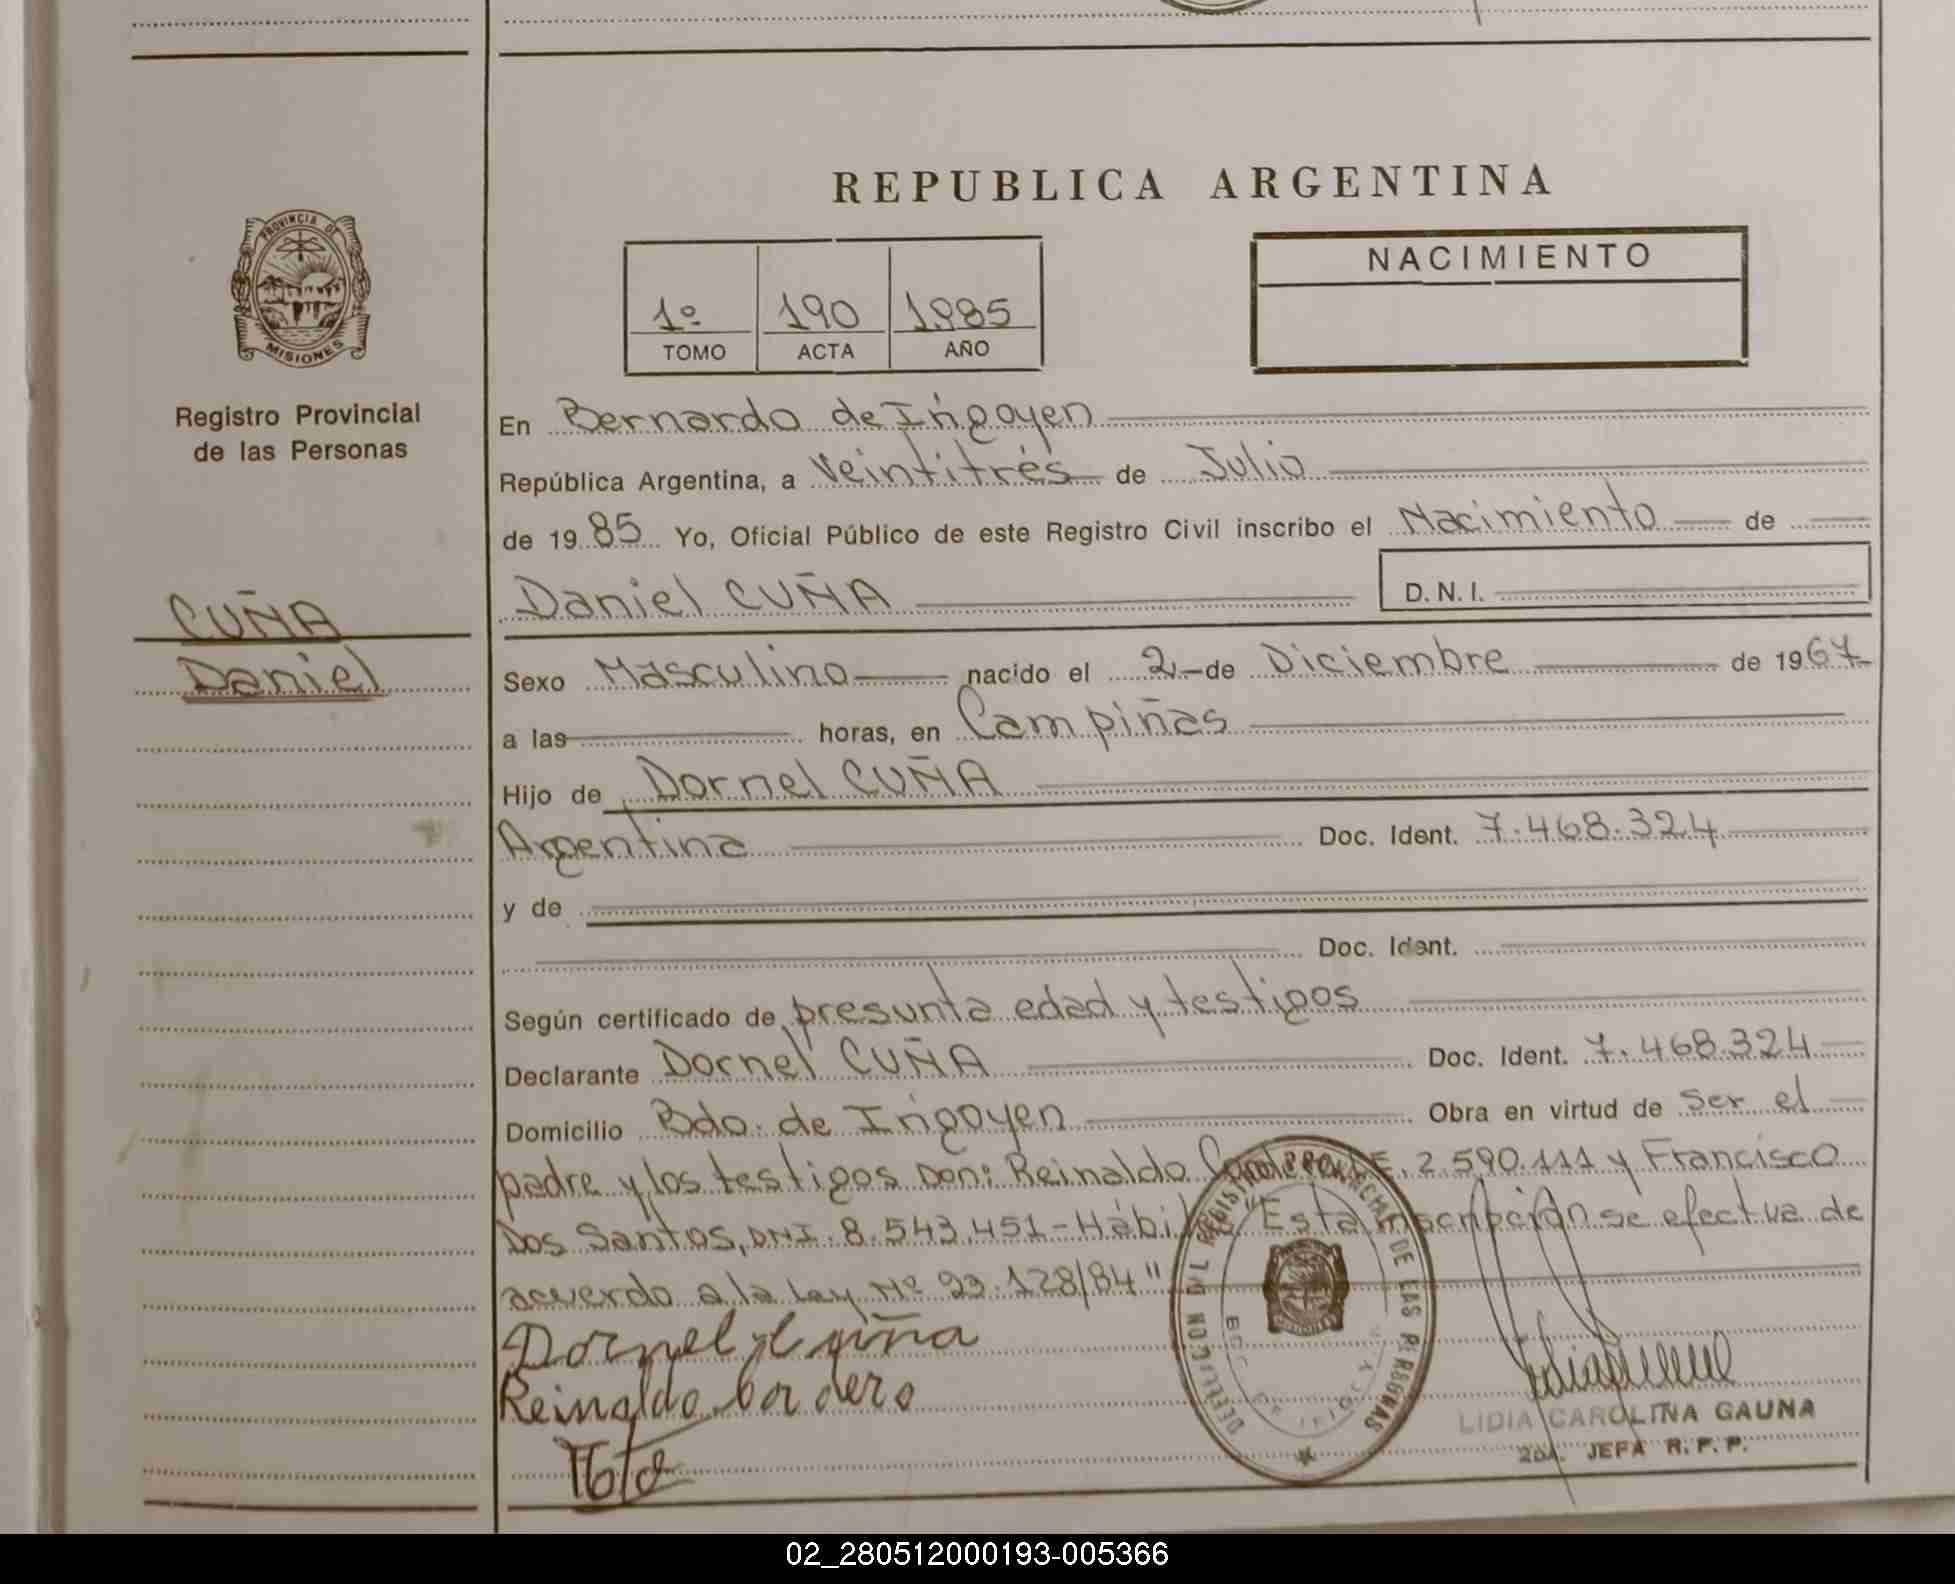 REPUBLICA ARGENTINA
PROVINCIA DE
MISIONES
Registro Provincial
de las Personas
1º 190 1985
TOMO ACTA AÑO
NACIMIENTO
En Bernardo de Irigoyen
República Argentina, a Veintitrés de Julio
de 1985 Yo, Oficial Público de este Registro Civil inscribo el Nacimiento de
Daniel CUÑA D. N. I.
CUÑA
Daniel
Sexo Masculino nacido el 2 de Diciembre de 1967
a las horas, en Campiñas
Hijo de Dornel CUÑA
Argentina Doc. Ident. 7.468.324
y de
Doc. Ident.
Según certificado de presunta edad y testigos
Declarante Dornel CUÑA Doc. Ident. 7.468.324
Domicilio Bdo. de Irigoyen Obra en virtud de Ser el
padre y los testigos Don: Reinaldo 2.590.111 y Francisco
Dos Santos, DNI. 8.543.451-Hábiles "Esta inscripción se efectua de
acuerdo a la Ley Nº 23.128/84"
Dornel Cuña
Reinaldo
LIDIA CAROLINA GAUNA
2da. JEFA R. P. P.
02_280512000193-005366